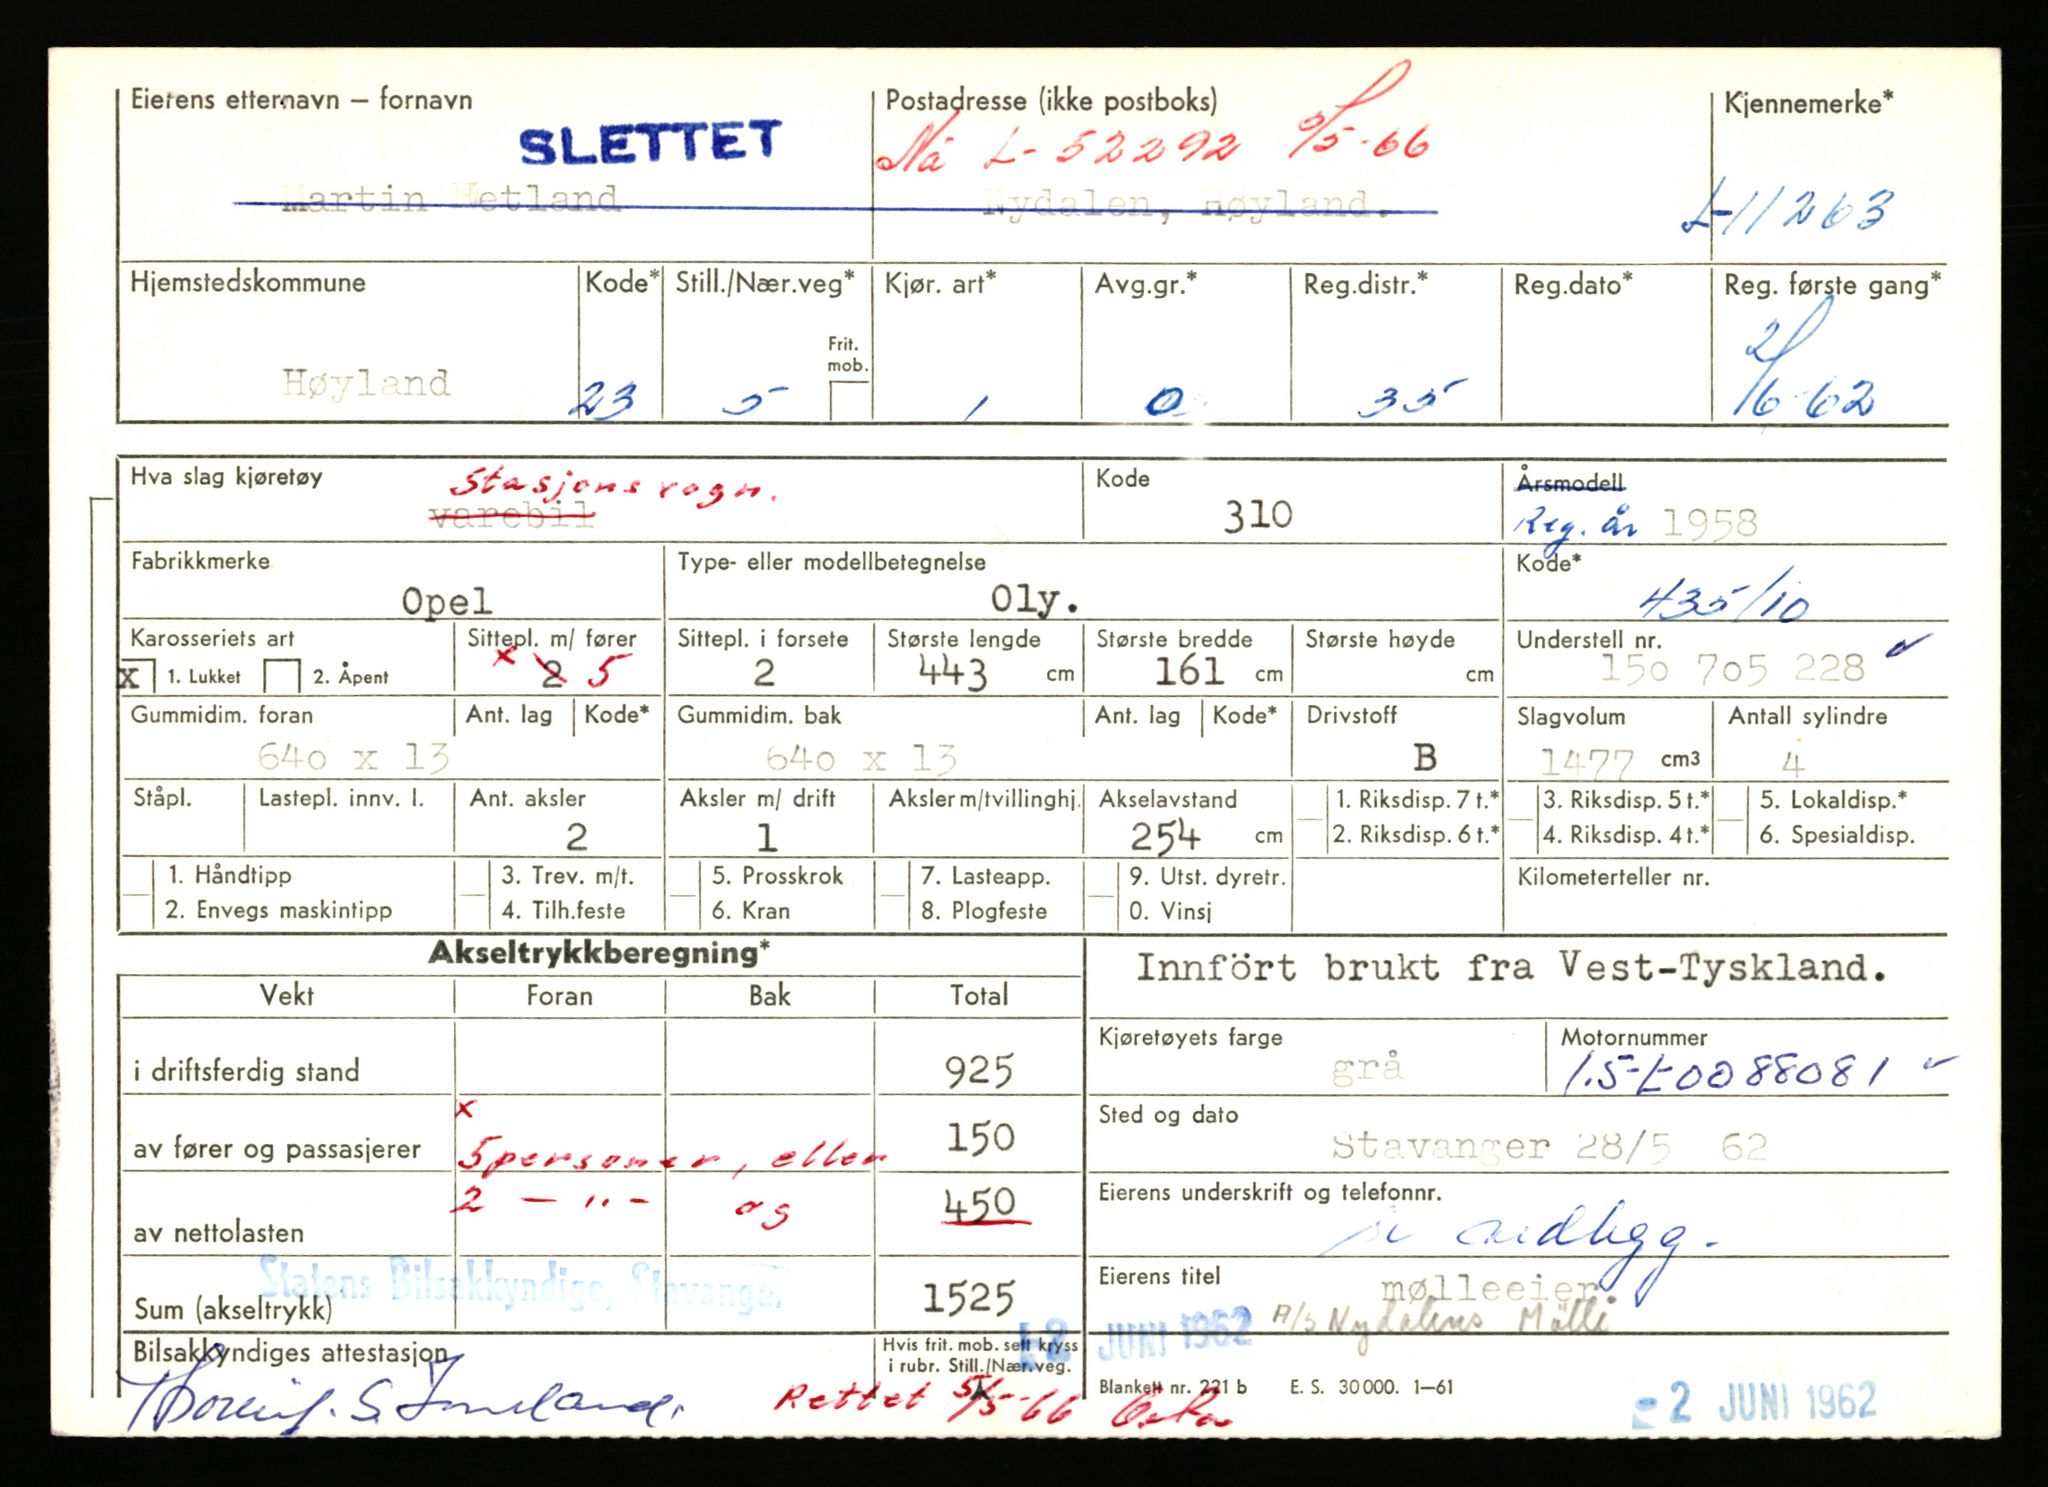 Eierens etternavn – fornavn Postadresse (ikke postboks) Kjennemerke*
SLETTET Nå L-52292 5/5-66
Martin Hetland Nydalen, Høyland. L-11263
Hjemstedskommune Kode* Still./Nær.veg* Kjør. art* Avg.gr.* Reg.distr.* Reg.dato* Reg. første gang*
Frit. mob.
Høyland 23 5 1 0 35 2/6-62
Hva slag kjøretøy Stasjonsvogn. Kode Årsmodell
varebil 310 Reg. år 1958
Fabrikkmerke Type- eller modellbetegnelse Kode*
Opel Oly. 435/10
Karosseriets art Sittepl. m/ fører Sittepl. i forsete Største lengde Største bredde Største høyde Understell nr.
X 1. Lukket 2. Åpent x 2 5 2 443 cm 161 cm cm 150 705 228
Gummidim. foran Ant. lag Kode* Gummidim. bak Ant. lag Kode* Drivstoff Slagvolum Antall sylindre
640 x 13 640 x 13 B 1477 cm3 4
Ståpl. Lastepl. innv. l. Ant. aksler Aksler m/ drift Aksler m/tvillinghj. Akselavstand 1. Riksdisp. 7 t.* 3. Riksdisp. 5 t.* 5. Lokaldisp.*
2 1 254 cm 2. Riksdisp. 6 t.* 4. Riksdisp. 4 t.* 6. Spesialdisp.
1. Håndtipp 3. Trev. m/t. 5. Prosskrok 7. Lasteapp. 9. Utst. dyretr. Kilometerteller nr.
2. Envegs maskintipp 4. Tilh.feste 6. Kran 8. Plogfeste 0. Vinsj
Akseltrykkberegning* Innfört brukt fra Vest-Tyskland.
Vekt Foran Bak Total
Kjøretøyets farge Motornummer
i driftsferdig stand 925 grå 1.5-L-0088081
x Sted og dato
av fører og passasjerer 5 personer, eller 150 Stavanger 28/5 62
2 – " – og 450 Eierens underskrift og telefonnr.
av nettolasten
Statens Bilsakkyndige, Stavanger. Eierens titel
Sum (akseltrykk) 1525 mølleeier
-2 JUNI 1962 A/S Nydalens Mölle
Bilsakkyndiges attestasjon Hvis frit. mob. sett kryss
i rubr. Still./Nær.veg.
Rettet 5/5-66 Blankett nr. 221 b E. S. 30000. 1–61 -2 JUNI 1962